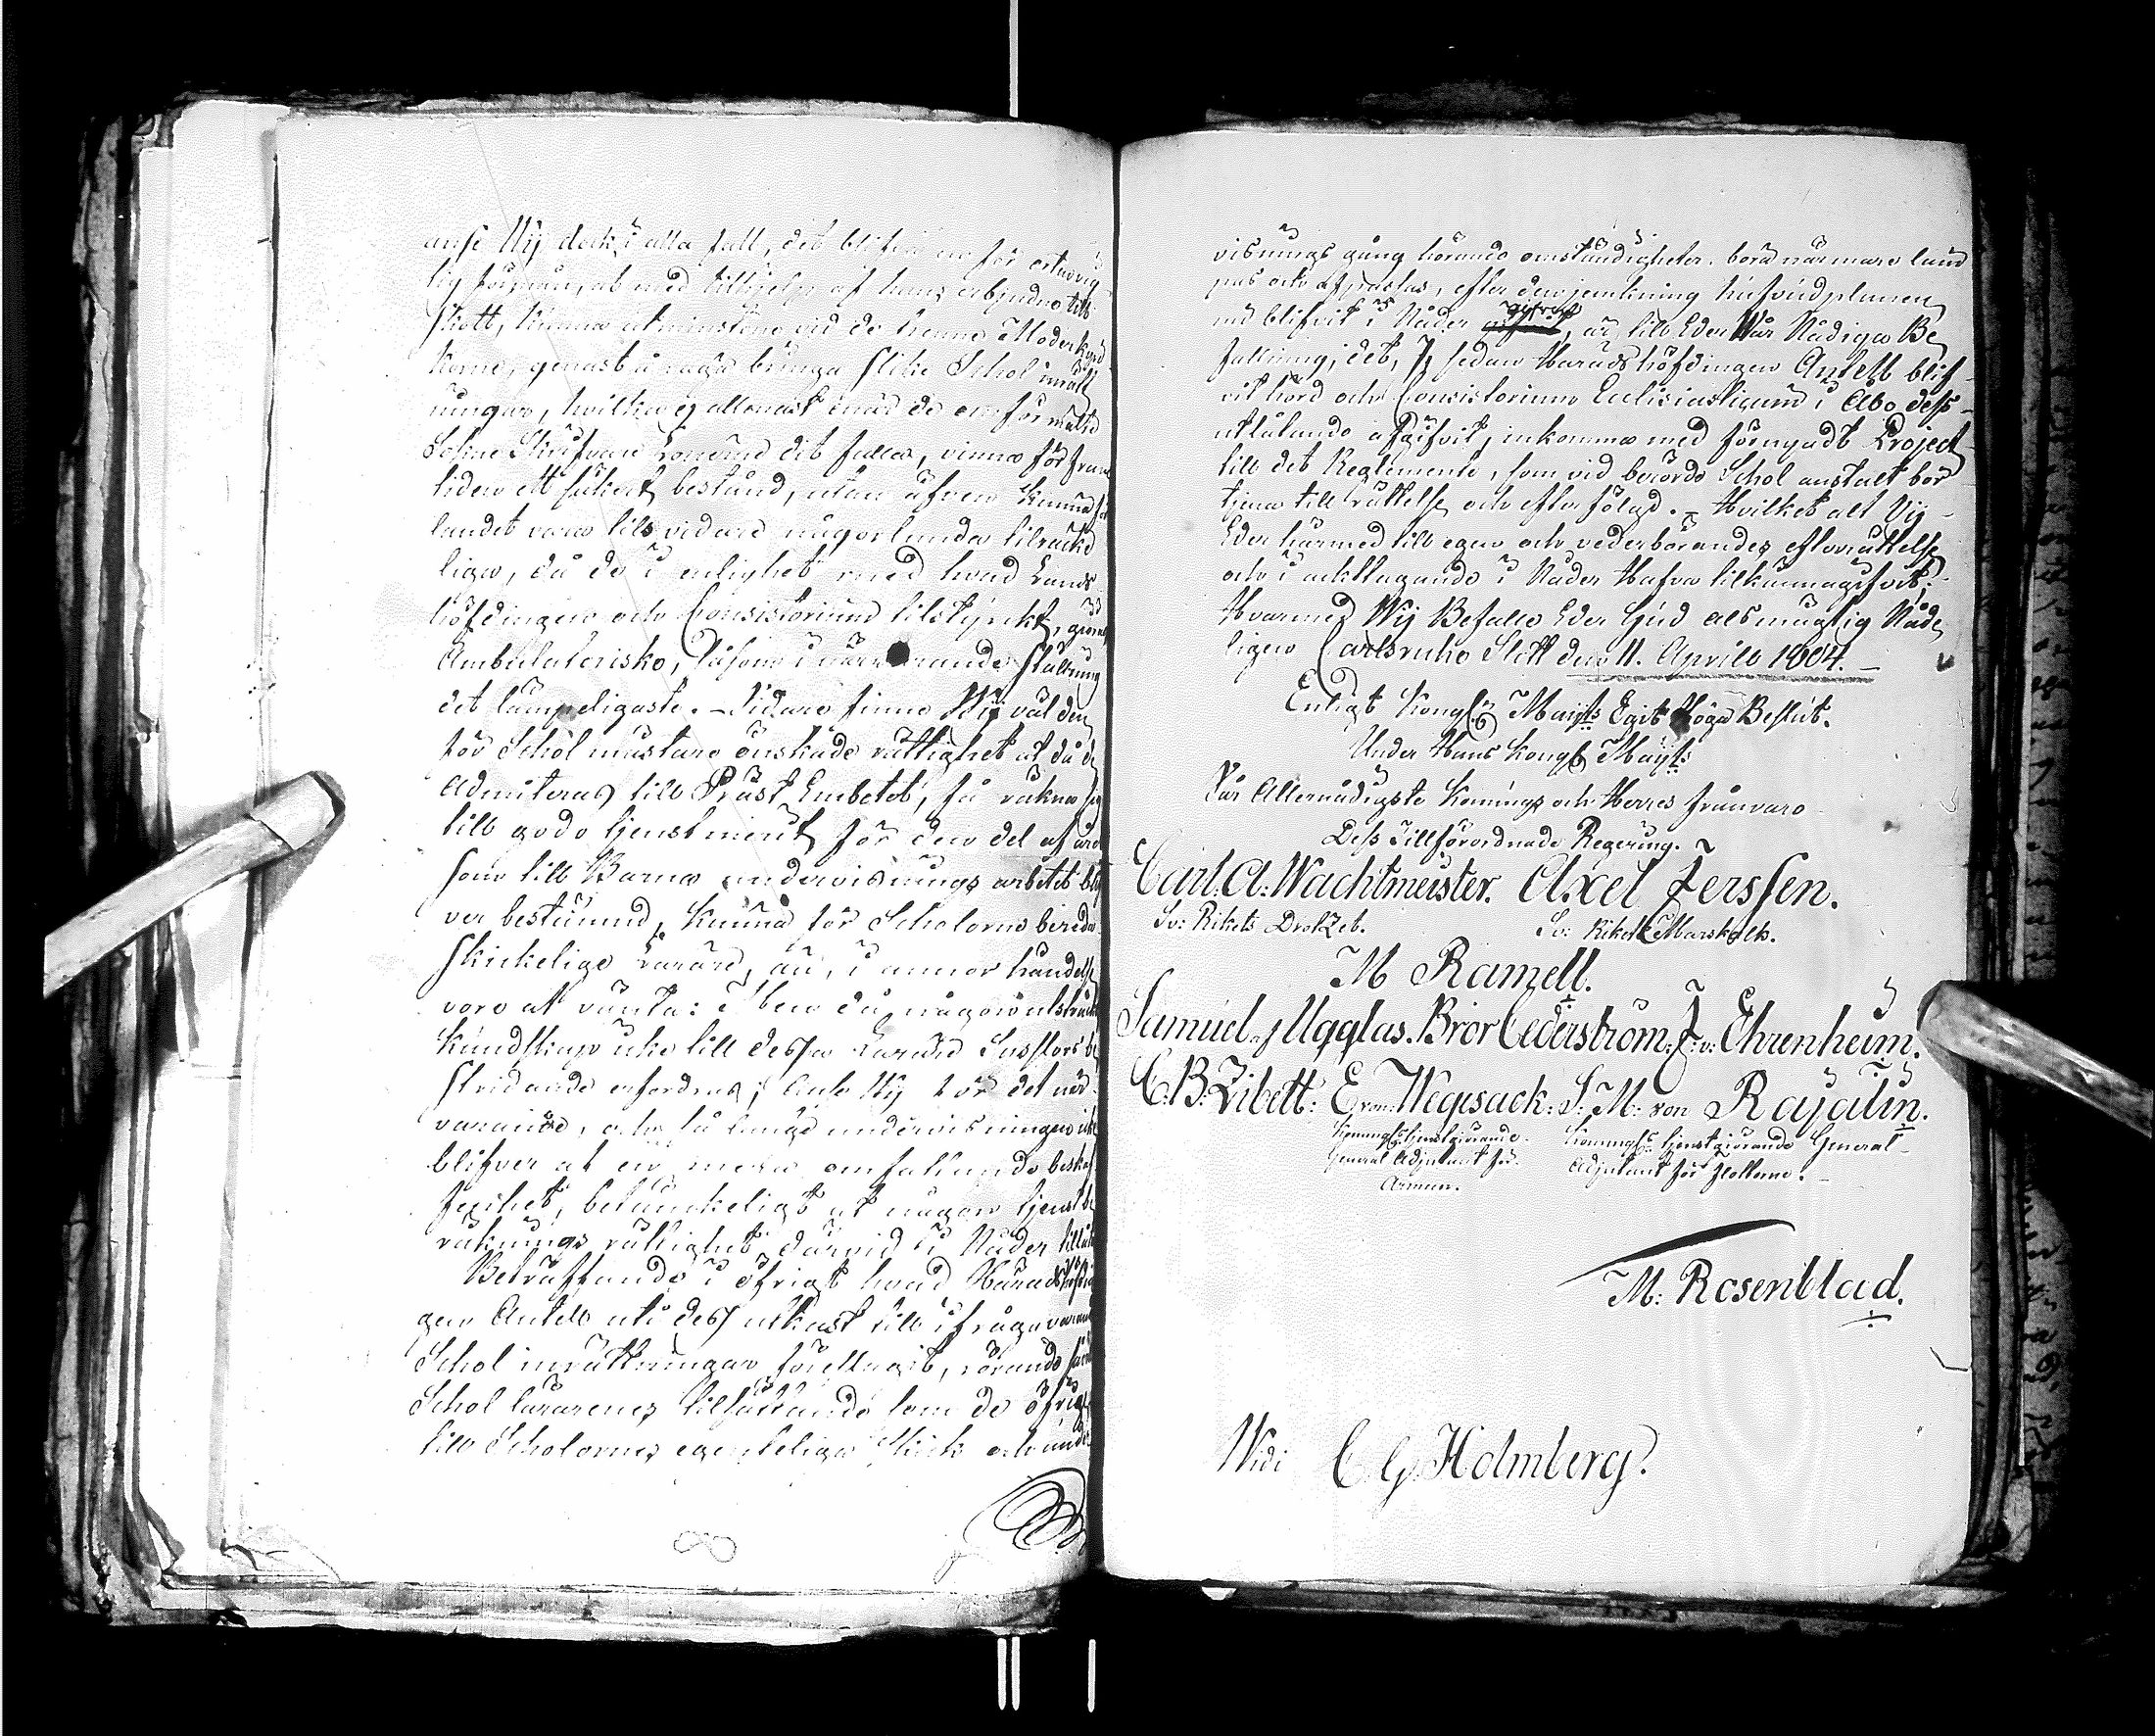 anse Wij dock i alla fall, det blifva en för ortn
lig förmån, at med tillhjelp af hans erbjudne till-
skott, kunna åtminstone vid de henne Moderkyr
korne, genast å väga bringa slike Schol inrätt
ningar, hvilka ej allenast
Sohne Skrifvare Lönerne dit falla, vinna för fram
tiden ett säkert bestånd, utan äfven kunna för
landet vara tils vidare någorlunda tilräcke
liga, då de i enlighet med hvad Lands
höfdingen och Consistorium tilstyrkt, giöras
Ambulatoriske, såsom i närvarande ställning
det lämpeligaste. – Vidare finne Wij väl den
för Scholmästare önskade rättighet at då de
admitteras till Präst Embetet, få räkna sig
till godo tjenst meriter för den del af året
som till Barna undervisnings arbetet blif
ver bestämmd, kunna för Scholorne bereda
skickelige Lärare, än, i annor händelse
vore at vänta: Men då någon utsträckt
kundskap icke till dessa Lärares Sysslors be
stridande erfordras; anse Wij för det när
varande, och så länge undervisningen icke
blifver af en mera omfattande beskaf
fenhet, betänkeligt at någon tjenst be
räknings rättighet därvid i Nåder tillåta
Beträffande i öfrigt hvad Häradshöfdin
gen Antell uti dess utkast till ifrågavarande
Schol inrättningar föreslagit, rörande såväl
Schol lärarenes tilsättande som de öfrige
till Scholornes egenteliga skick och under
visnings gång hörande omständigheter, böra närmare läm
pas och afpassas, efter den jemkning hufvudplanen
nu blifvit i Nåder gifven, är till Eder Wår Nådiga Be
fallning; det, J, sedan Häradshöfdingen Antell blif
vit hörd och Consistorium Ecclesiasticum i Åbo dess
utlåtande afgifvit, inkomma med förnyadt Project
till det Reglemente, som vid berörde Schol anstalt bör
tjena till rättelse och efterföljd. – Hvilket alt Wij
Eder härmed till egen och vederbörandes efterrättelse
och i akttagande i Nåder Hafva tilkännagifvit.
Hvarmed Wij Befalle Eder Gud alsmägtig Nåde
ligen Carlsruhe Slott den 11. Aprill 1804. –
Enligt Kongl. Maijts Egit Höga Beslut.
Under Hans Kongl. Maijts
Vår Allernådigste Konungs och Herres frånvaro
Dess Tillförordnade Regering.
Carl. A: Wachtmeister. Axel Ferssen.
Sv: Rikets Drotzet. Sv: Rikets Marskalk.
M Ramell.
Samuel af Ugglas. Bror Cederström. F: v: Ehrenheim.
C: B: Zibett: E von: Wegesack: S: M: von Rajalin.
Konungens tjenstgiörande Konungens tjenstgiörande General
General Adjutant för Adjutant för Flottorne.
Armeen.
M: Rosenblad.
Vidi C. G. Holmberg.